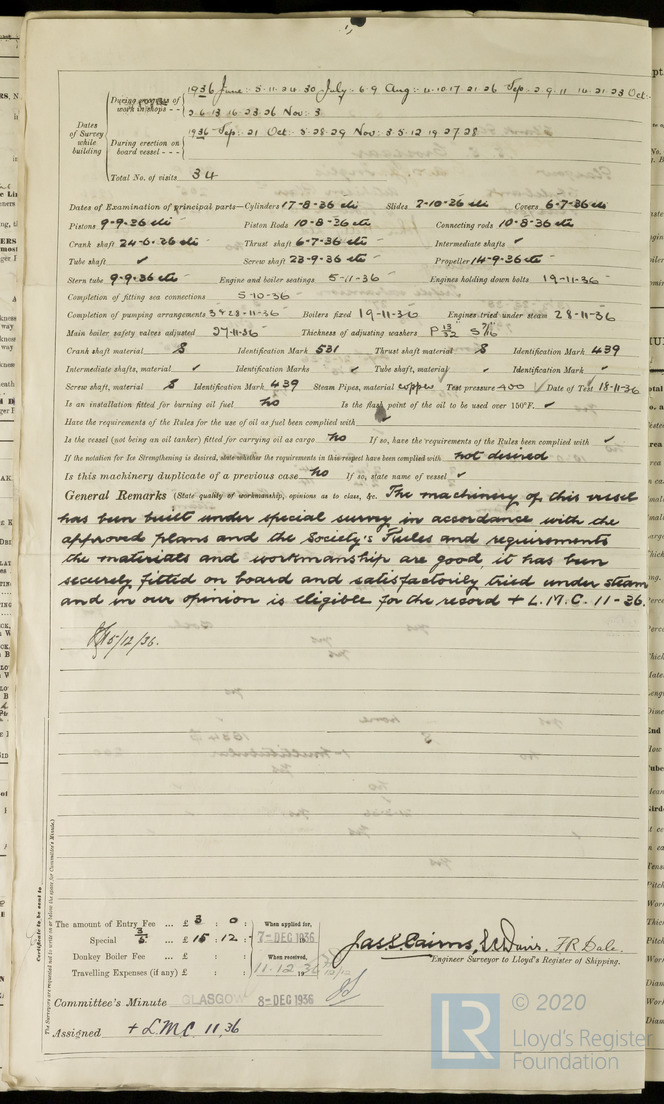 1936 June: 5. 11. 24. 30 July. 6. 9 Aug: 4. 10. 17. 21. 26 Sep. 2. 9. 11 14. 21. 23 Oct.
During progress of work in shops - - 2. 6. 13 16. 23. 26 Nov: 3
Dates of Survey while building
During erection on board vessel - - - 1936 Sep: 21 Oct: 5. 28. 29 Nov: 3. 5. 12 19 27 28
Total No. of visits 34
Dates of Examination of principal parts—Cylinders 17-8-36 etc Slides 2-10-36 etc Covers 6-7-36 etc
Pistons 9-9-36 etc Piston Rods 10-8-36 etc Connecting rods 10-8-36 etc
Crank shaft 24-6-36 etc Thrust shaft 6-7-36 etc Intermediate shafts ✓
Tube shaft ✓ Screw shaft 23-9-36 etc Propeller 14-9-36 etc
Stern tube 9-9-36 etc Engine and boiler seatings 5-11-36 Engines holding down bolts 19-11-36
Completion of fitting sea connections 5-10-36
Completion of pumping arrangements 3 & 28-11-36 Boilers fixed 19-11-36 Engines tried under steam 28-11-36
Main boiler safety valves adjusted 27-11-36 Thickness of adjusting washers P 13/32 S 7/16
Crank shaft material S Identification Mark 531 Thrust shaft material S Identification Mark 439
Intermediate shafts, material ✓ Identification Marks ✓ Tube shaft, material ✓ Identification Mark ✓
Screw shaft, material S Identification Mark 439 Steam Pipes, material copper Test pressure 400 ✓ Date of Test 18-11-36
Is an installation fitted for burning oil fuel no Is the flash point of the oil to be used over 150°F. ✓
Have the requirements of the Rules for the use of oil as fuel been complied with
Is the vessel (not being an oil tanker) fitted for carrying oil as cargo no If so, have the requirements of the Rules been complied with ✓
If the notation for Ice Strengthening is desired, state whether the requirements in this respect have been complied with not desired
Is this machinery duplicate of a previous case no If so, state name of vessel ✓
General Remarks (State quality of workmanship, opinions as to class, &c. The machinery of this vessel
has been built under special survey in accordance with the
approved plans and the Society's Rules and requirements
the materials and workmanship are good, it has been
securely fitted on board and satisfactorily tried under steam
and in our opinion is eligible for the record + L.M.C. 11-36.
15/12/36.
The amount of Entry Fee ... £ 3 : 0 : When applied for,
Special ... £ 15 : 12 : 7-DEC 1936
Donkey Boiler Fee ... £ : : When received,
Travelling Expenses (if any) £ : : 11.12.36
Jas. S. Cairns, F.R. Dale.
Engineer Surveyor to Lloyd's Register of Shipping.
Committee's Minute GLASGOW 8-DEC 1936
Assigned + LMC 11,36
Certificate to be sent to
The Surveyors are requested not to write on or below the space for Committee's Minute.
LR © 2020
Lloyd's Register
Foundation